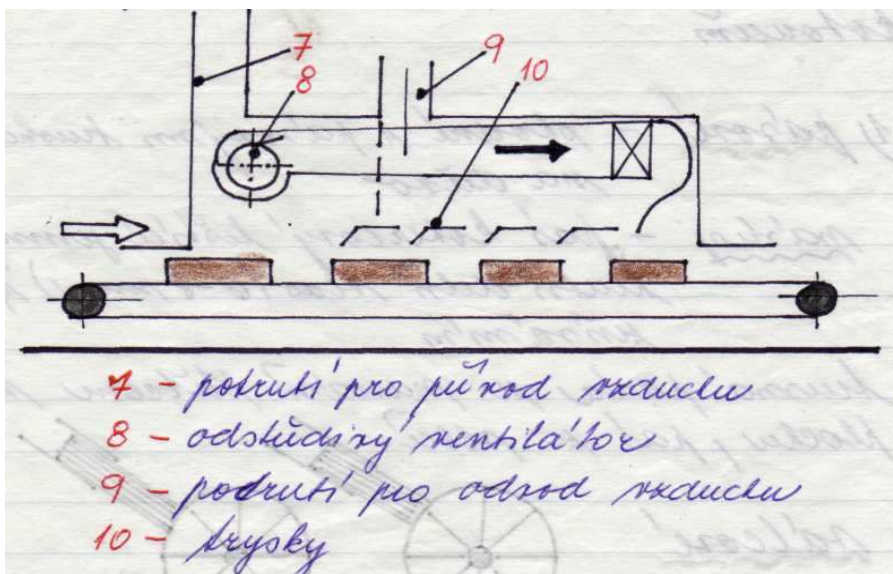 7
8
9
10
7 - potrubí pro přívod vzduchu
8 - odstředivý ventilátor
9 - potrubí pro odvod vzduchu
10 - trysky